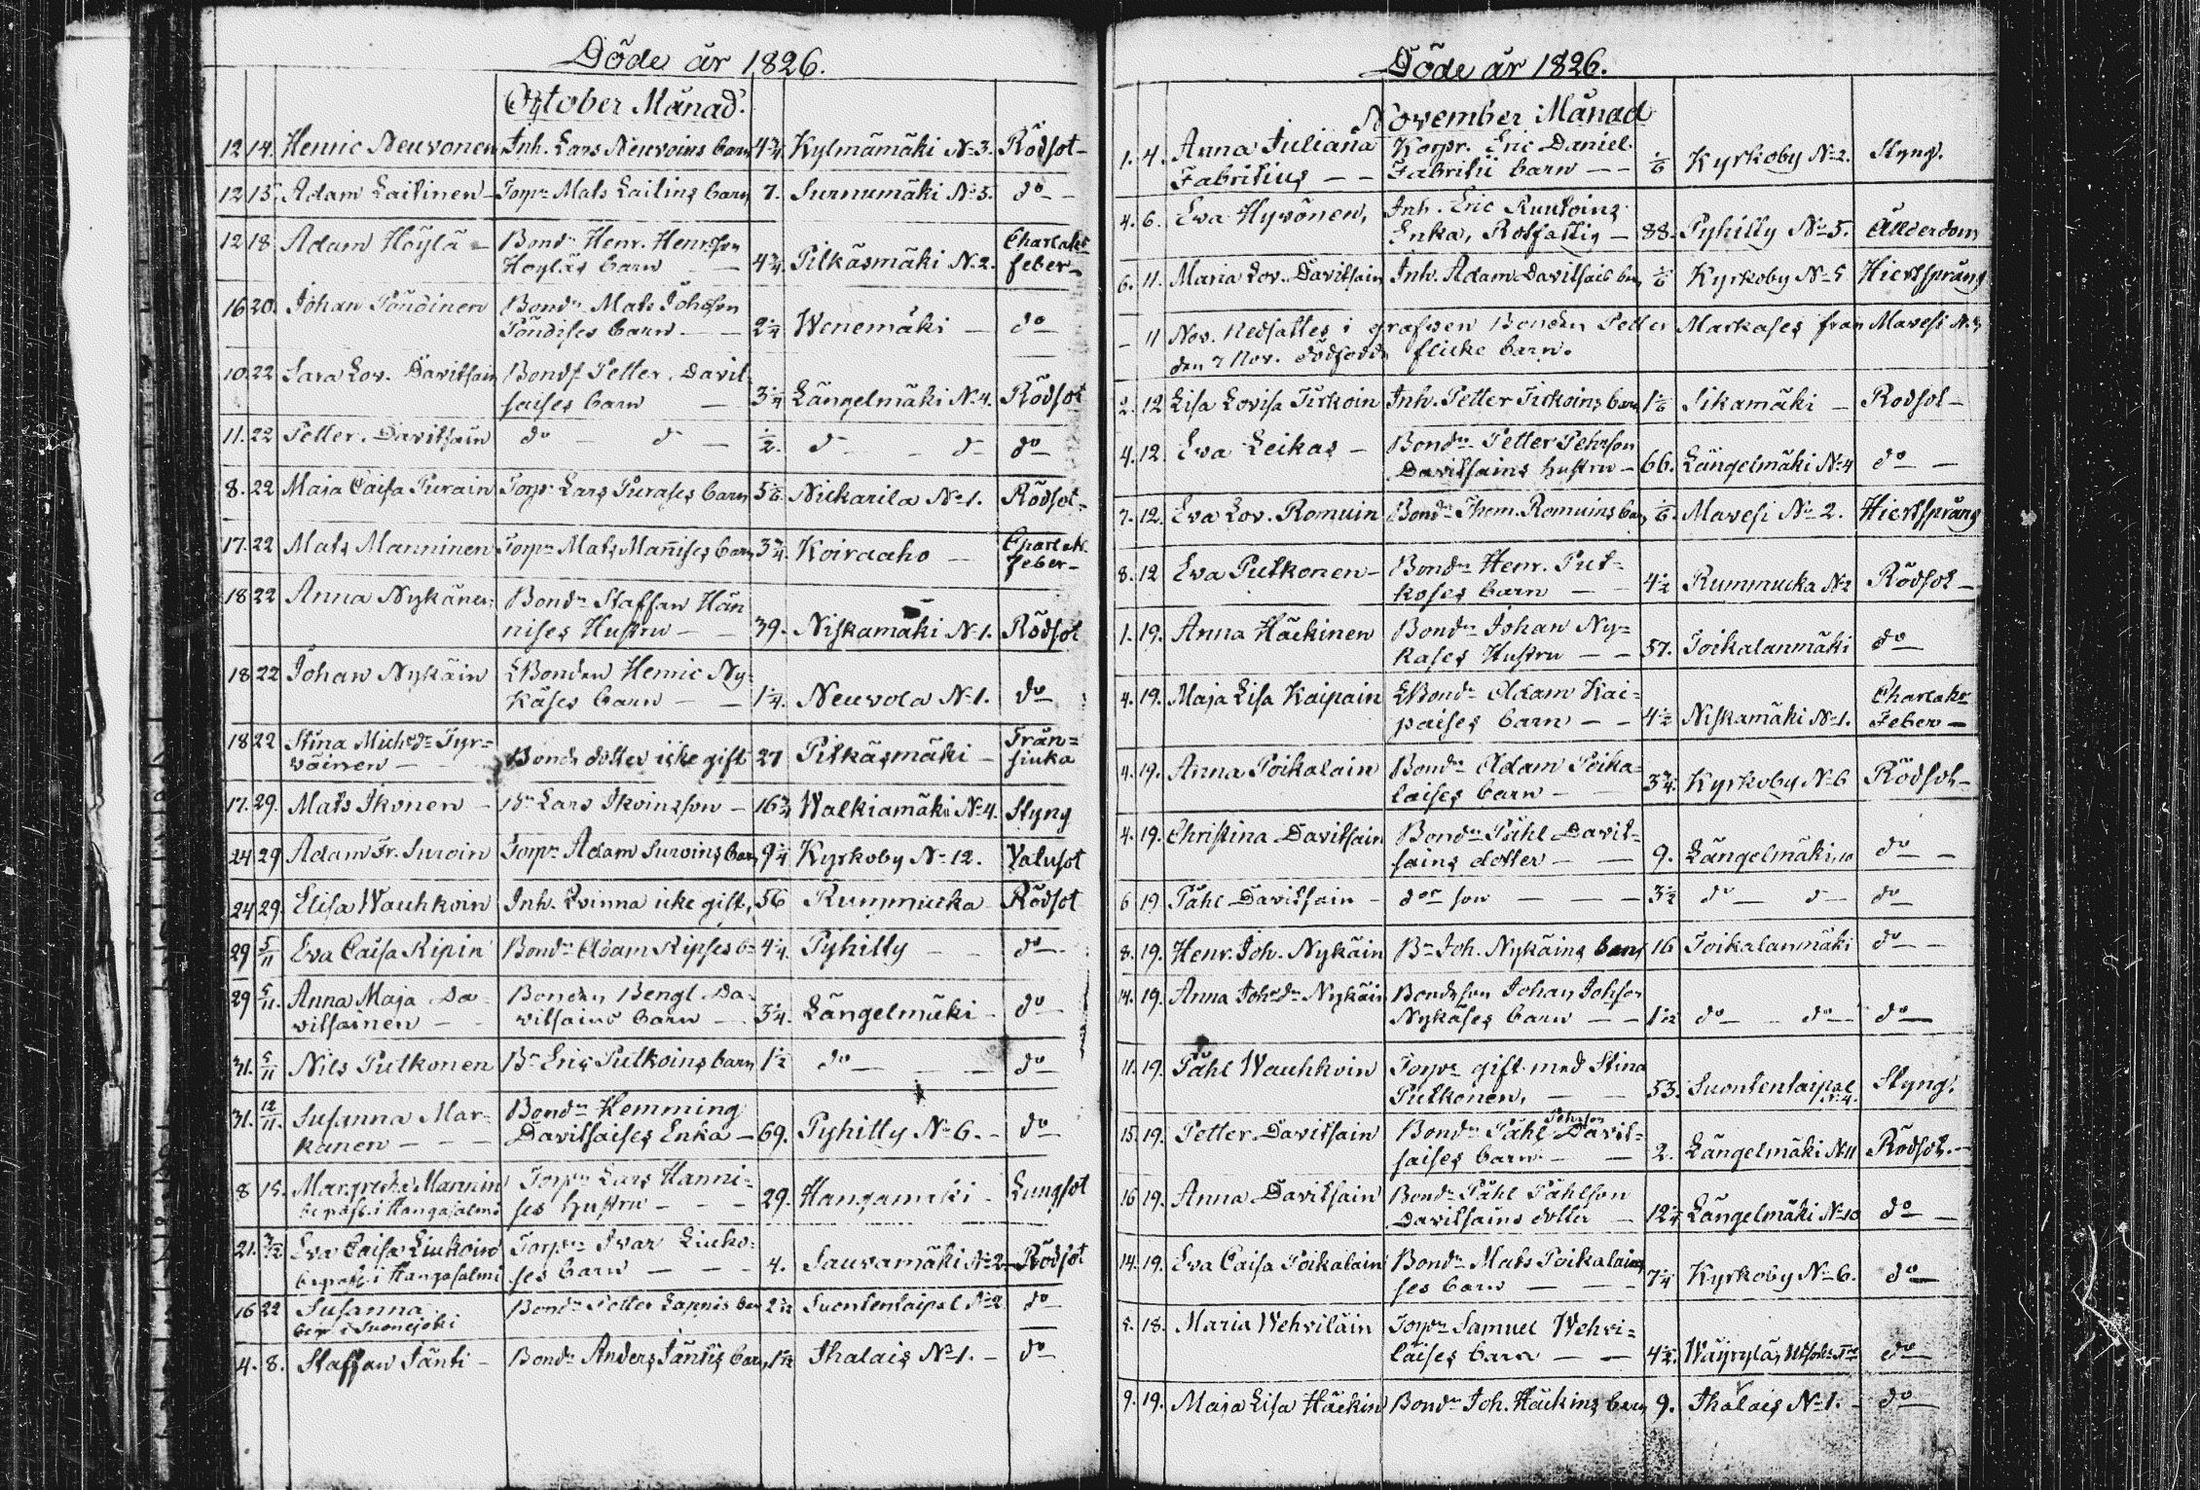 Döde år 1826.
October Månad.
12 14. Henric Neuvonen Inh. Lars Neuvoins barn 4 3/4 Kylmämäki N:3. Rödsot
12 15. Adam Laitinen Torp: Mats Laitins barn 7. Surnumäki N:5. do
12 18. Adam Höylä Bond: Henr. Henrsson Charlak:
Höyläs barn 4 3/4 Pitkäsmäki N:2. feber
16 20. Johan Pöndinen Bond: Mats Johsson
Pöndises barn 2 1/4 Wenemäki do
10. 22 Sara Lov. Davitsain Bond: Petter Davit-
saises barn 3 1/4 Längelmäki N:4. Rödsot
11. 22 Petter Davitsain do d 1/2. d d do
8. 22 Maja Caisa Purain Torp: Lars Purases barn 5 1/6 Nickarila N:1. Rödsot
17. 22 Mats Manninen Torp: Mats Mañises barn 3 3/4. Koiraaho Charlak:
feber
18 22 Anna Nykänen Bond: Staffan Hän
nises Hustru 39. Niskamäki N:1. Rödsot
18 22 Johan Nykäin Bonden Henric Ny-
käses barn 1 1/4. Neuvola N:1. do
18 22 Stina Michsd: Tyr= Trån=
väinen Bonds dotter icke gift 27 Pitkäsmäki sjuka
17. 29. Mats Ikonen B: Lars Ikoins son 16 3/4 Walkiamäki N:4. Styng
24 29 Adam Fr. Suroin Torp: Adam Suroins barn 9 1/4 Kyrkoby N:12. Valusot
24 29. Elisa Wauhkoin Inh. Qvinna icke gift, 56 Rummucka Rödsot
29 5/11 Eva Caisa Ripin Bond: Adam Ripses b: 4 1/4. Pyhitty do
29 5/11. Anna Maja Da- Bonden Bengt Da-
vitsainen vitsains barn 3 1/4. Längelmäki do
31. 5/11 Nils Putkonen B: Eric Putkoins barn 1 1/2 do do
31. 12/11. Susanna Mar- Bond: Hemming
kanen Davitsaises Enka 69. Pyhitty N:6. do
8 15. Margreta Mannin Torp: Lars Hanni-
begrafv. i Hangasalmi ses hustru 29. Hangamäki Lungsot
21. 3/12 Eva Caisa Liukoin Torp: Ivar Liuko-
begrafv. i Hangasalmi ses barn 4. Sauvamäki N:2 Rödsot
16 22 Susanna Bond: Petter Lappis barn 2 1/2 Suontentaipal N:2 do
begr i Suonejoki
4. 8. Staffan Jänti Bond: Anders Jäntis barn 1 1/2 Ihalais N:1. do
Döde år 1826.
November Månad
1. 4. Anna Juliana Korpr. Eric Daniel
Fabritius Fabritii barn 1/6 Kyrkoby N:2. Styng.
4. 6. Eva Hyvönen, Inh. Eric Ruutoins
Enka, Rotfattig 88. Pyhitty N:5. Ålderdom
6. 11. Maria Lov. Davitsain Inh. Adam Davitsais barn 1/6 Kyrkoby N:5 Hiertsprång
11 Nov. Nedsattes i grafven Bonden Petter Markases från Mavesi N:3
den 7 Nov. dödfödda flicke barn.
2. 12 Lisa Lovisa Tirkoin Inh. Petter Tirkoins barn 1 1/6 Sikamäki Rödsot
4. 12. Eva Leikas Bond: Petter Pehrson
Davitsains hustru 66. Längelmäki N:4 do
7. 12. Eva Lov. Romuin Bond: Thom. Romuins barn 1/6. Mavesi N:2. Hiertsprång
8. 12 Eva Putkonen Bond: Henr. Put=
koses barn 4 1/2 Rummucka N:2 Rödsot
1. 19. Anna Häckinen Bond: Johan Ny=
käses Hustru 57. Toikalanmäki do
4. 19. Maja Lisa Kaipain Bond: Adam Kai= Charlak:
paises barn 4 1/2 Niskamäki N:1. Feber
4. 19. Anna Poikalain Bond: Adam Poika=
laises barn 3 3/4. Kyrkoby N:6 Rödsot
4. 19. Christina Davitsain Bond: Påhl Davit=
sains dotter 9. Längelmäki 10 do
6 19 Påhl Davitsain do son 3 1/2 do d do
8. 19. Henr. Joh. Nykäin B: Joh. Nykäins barn 16 Toikalanmäki do
14. 19. Anna Johsd: Nykäin Bondeson Johan Johsson
Nykäses barn 1 1/2 do do do
11. 19. Påhl Wauhkoin Torp: gift med Stina
Putkonen, 53. Suontentaipal Styng.
N:4.
15. 19. Petter Davitsain Bond: Påhl Pehrson Davit=
saises barn 2. Längelmäki N:11 Rödsot.
16 19. Anna Davitsain Bond: Påhl Påhlson
Davitsains dotter 12 1/4 Längelmäki N:10 do
14. 19. Eva Caisa Poikalain Bond: Mats Poikalain
ses barn 7 1/4 Kyrkoby N:6. do
5. 18. Maria Wehviläin Torp: Samuel Wehvi=
läises barn 4 1/2. Wäyrylä, do
9. 19. Maja Lisa Häckin Bond: Joh. Häckins barn 9. Ihalais N:1. do